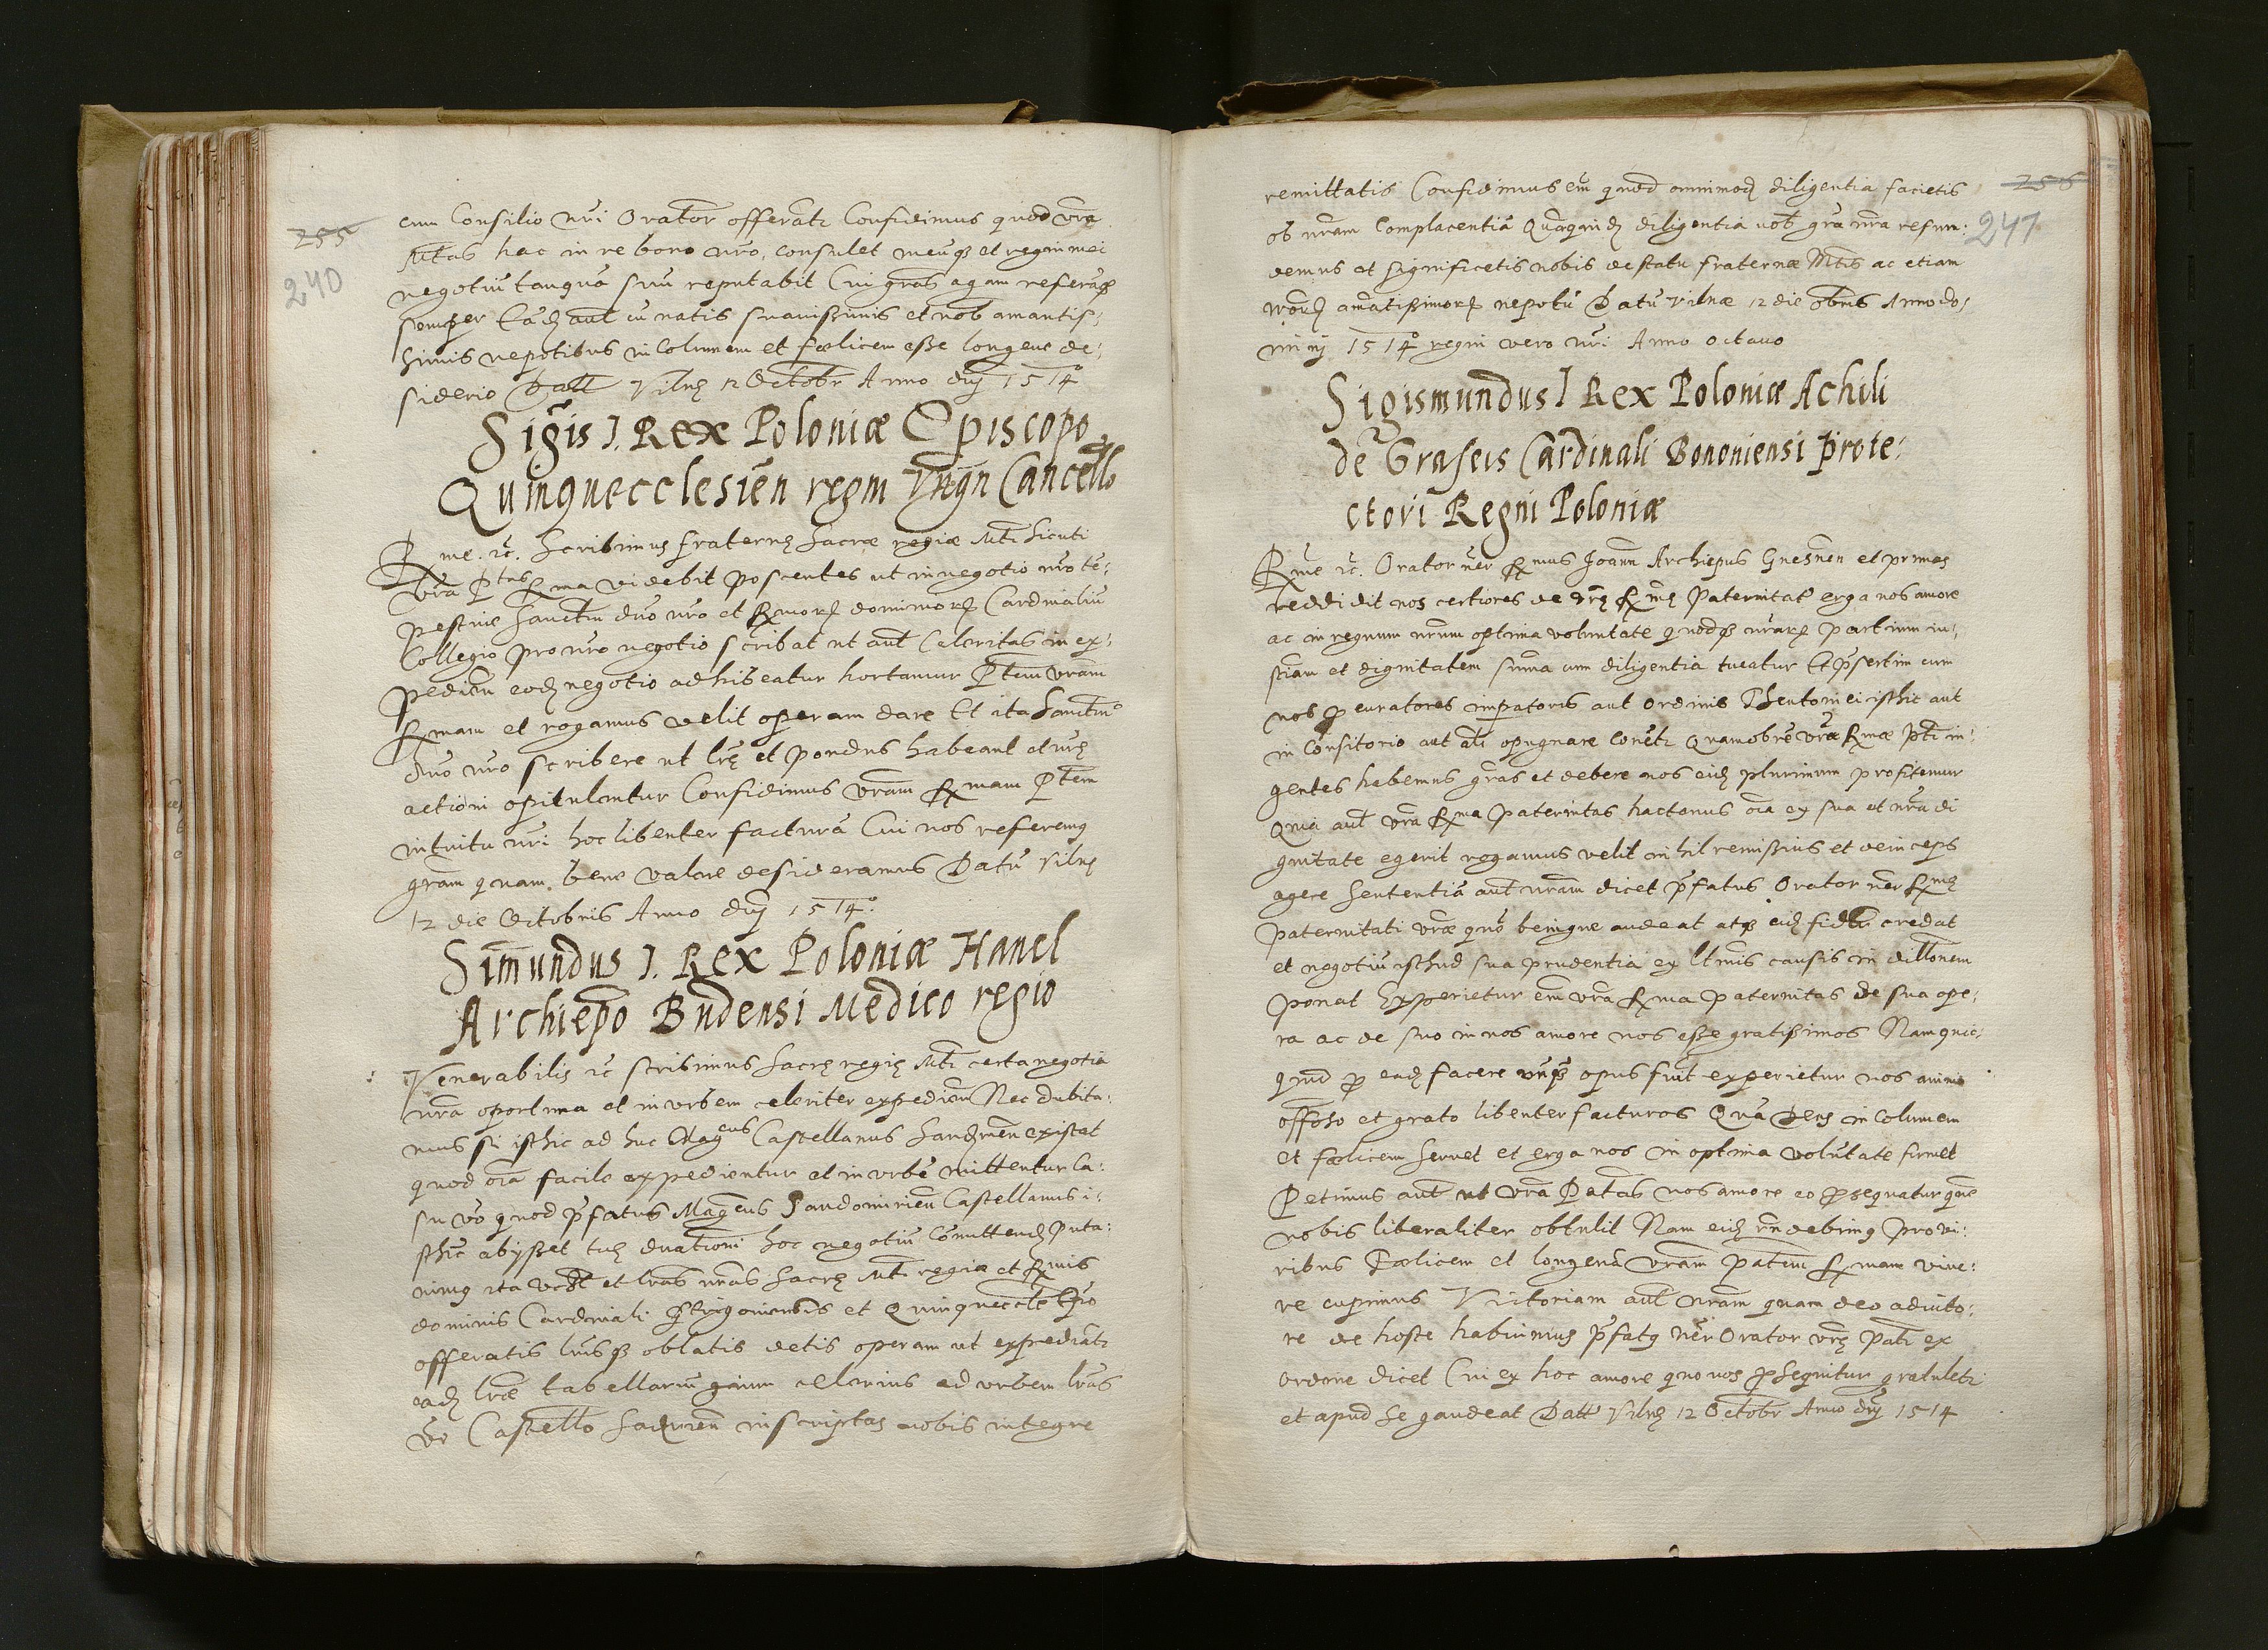 255
240
cum Consilio nr̄i Orator offerāt Confidimus quod vr̄a
Mtas hac in re bono nr̄o, consulet meūq et regni mei
negotiū tanquā suū reputabit Cui gr̄as agam referāq
semper Eād aut̄ cū natis suavissimis et nob̄ amantis¬
simis nepotibus incolumem et fœlicem esse longeue de¬
siderio Datt Vilnę 12 Octobr Anno dnj 1514º
Sigīs J. Rex Poloniæ Episcopo
Quinquecclesiēn regni Vngn Cancello
Rme. rc. Scribimus fraternę Sacræ regiæ Mti sicuti
vr̄a Ptas Rma videbit poscentes ut in negotio nr̄o te¬
pestiue Sanctm̄ dn̄o nr̄o et Rmorȝ dominorȝ Cardinaliū
Collegio pro nr̄o negotio scribat ut aut̄ Celeritas in ex¬
pediēn eodȝ negotio adhibeatur hortamur Ptem vr̄am
Rmam et rogamus velit operam dare Et ita Sanctmo
dn̄o nr̄o scribere ut lr̄ę et pondus habeant et nr̄ę
actioni opitulentur Confidimus vr̄am Rmam Ptem
intuitu nr̄i hoc libenter facturā Cui nos referemq
gr̄am quam bene valere desideramus Datū Vilnę
12 die Octobris Anno dnj 1514º.
Simundus J. Rex Poloniæ Hanel
Archiepo Budensi Medico regio
Venerabilis rc scribimus Sacrę regię Mti certa negotia
nr̄a oportuna et in urbem celeriter expediēn Nec dubita¬
mus si isthic ad huc Mageus Castellanus Sandmēn existet
quod oīa facile expedientur et in urbē mittentur Ca¬
su vō quod p̄fatus Mageus Sandomiriēn Castellanus i¬
sthic abysset tuę duationi hoc negotiū Comittendȝ puta¬
uimq ita ut et lr̄as nr̄as Sacrę Mti regiæ et Rmis
dominis Cardinali Strigoniensis et Quinqueccle Epo
offeratis lr̄isq oblatis detis operam ut expediāt
eadȝ lr̄æ tabellariū qnium celerius ad urbem lr̄as
vō Castello Sadmiēn inscriptas nobis integre
256
247
remittatis Confidimus em̄ quod omnimodȝ diligentia facietis
ob nr̄am Complacentiā Quaquidȝ diligentia uob̄ gr̄a nr̄a refun¬
demus et significetis nobis de statu fraternæ Mtis ac etiam
nr̄orȝ amatissimorȝ nepotū Datū Vilnæ 12 die obris Anno do¬
mi nj 1514º regni vero nr̄i Anno octauo
Sigismundus J Rex Poloniæ Achili
de Graseis Cardinali Bononiensi Prote¬
ctori Regni Poloniæ
Rme rc. Orator nēr Rmus Joann Archiepus Gnesnēn et primas
reddidit nos certiores de vr̄ę Rmę Paternitat̄ erga nos amore
ac in regnum nr̄um optima voluntate quodq nr̄arȝ partium iu¬
stiam et dignitatem suma cum diligentia tueatur Et p̄sertim cum
nos p curatores imperatoris aut Ordinis Theutonici isthic aut
in Consitorio aut al̄i opugnare conēt Quamobrē vr̄æ Rmæ pti in¬
gentes habemus gr̄as et debere nos eidȝ plurimum profitemur
Quia aut̄ vr̄a Rma Paternitas hactenus oīa ex sua et nr̄a di
gnitate egerit rogamus velit nihil remissius et deinceps
agere Sententiā aut̄ nr̄am dicet p̄fatus Orator nēr Rmę
Paternitati vr̄æ quo benigne audeat atq eidȝ fidem credat
et negotiū isthud sua prudentia ex ltmis causis in dillonem
ponat Experietur em̄ vr̄a Rma paternitas de sua ope¬
ra ac de suo in nos amore nos esse gratissimos Nam quic¬
quid p eadȝ facere unqȝ opus fuit experietur nos animo
offoso et grato libenter facturos Quā Deus incolumem
et fœlicem seruet et erga nos in optima volūtate firmet
Petimus aut̄ ut vr̄a Patas nos amore eo psequatur quē
nobis liberaliter obtulit Nam eidȝ rndebimq pro vi¬
ribus Fœlicem et longeuā vr̄am Patem Rmam viue¬
re cupimus Victoriam aut̄ nr̄am quam deo adiuto¬
re de hoste habuimus p̄fatq nēr Orator vr̄ę Pati ex
ordine dicet Cui ex hoc amore quo nos psequitur gratulet
et apud se gaudeat Datt Vilnę 12 Octobr Anno dnj 1514